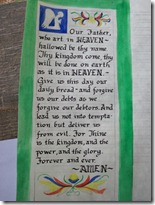 Our Father,
who art in HEAVEN –
hallowed be thy name.
Thy kingdom come, thy
will be done on earth
as it is in HEAVEN. –
Give us this day our
daily bread – and forgive
us our debts as we
forgive our debtors. And
lead us not into tempta
tion but deliver us
from evil. For Thine
is the kingdom, and the
power, and the glory.
Forever and ever.
– AMEN –